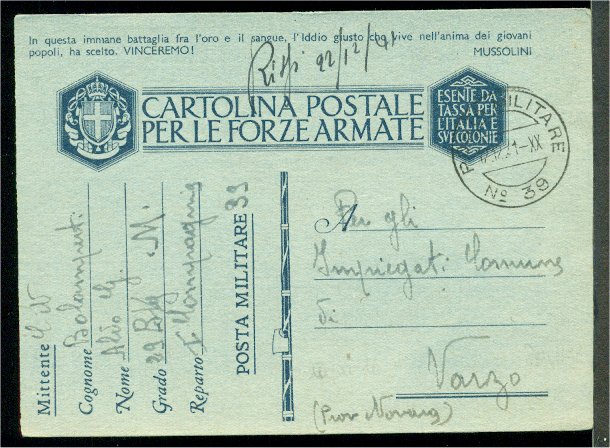 In questa immane battaglia fra l'oro e il sangue, l'Iddio giusto che vive nell'anima dei giovani
popoli, ha scelto. VINCEREMO!
MUSSOLINI
22/12/41
CARTOLINA POSTALE
PER LE FORZE ARMATE
ESENTE DA
TASSA PER
L'ITALIA E
SUE COLONIE
MILITARE
1-XX
No 39
Mittente
Cognome
Nome
Grado
Reparto I Compagnia
POSTA MILITARE 39
A Per gli
Impiegati Comune
di
Varzo
(Prov Novara)